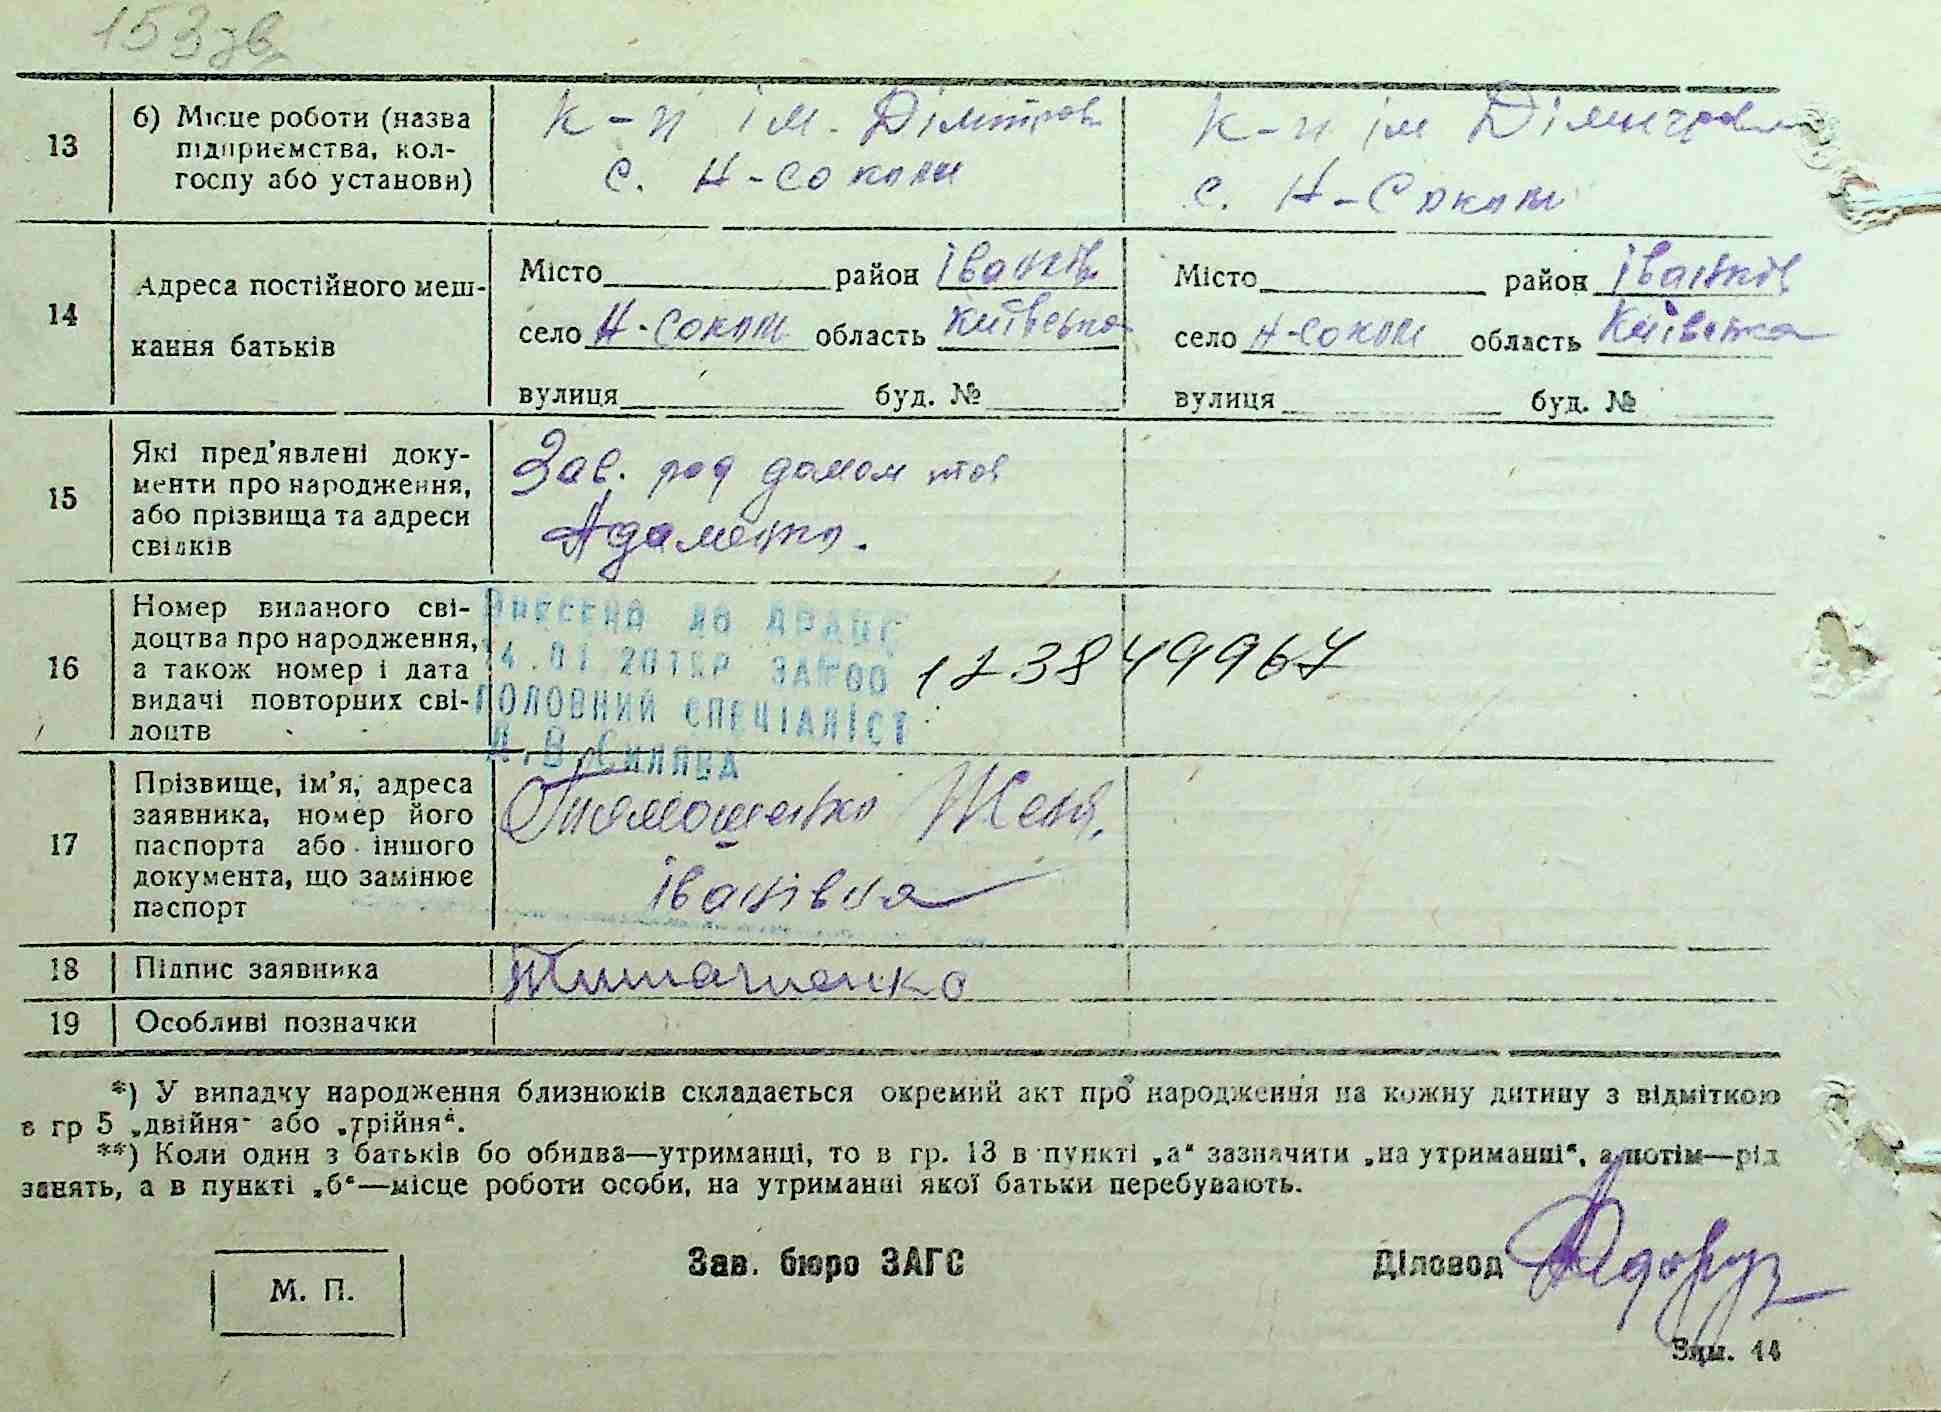 153зв
13
б) Місце роботи (назва
підприємства, кол-
госпу або установи)
к-п ім. Дімітров
с. Н-Соколи
к-п ім Дімитрова
с. Н-Соколи
14
Адреса постійного меш-
кання батьків
Місто район Іванків
село Н-Соколи область Київська
вулиця буд. №
Місто район Іванків
село Н-Соколи область Київська
вулиця буд. №
15
Які пред'явлені доку-
менти про народження,
або прізвища та адреси
свідків
Зав. род домом тов
Адаменко.
16
Номер виданого сві-
доцтва про народження,
а також номер і дата
видачі повторних сві-
доцтв
Внесено до ДРАЦС
14.01.2012р ЗА№00
ГОЛОВНИЙ СПЕЦІАЛІСТ
17
Прізвище, ім'я, адреса
заявника, номер його
паспорта або іншого
документа, що замінює
паспорт
Тимошенко Женя,
Іванівна
18
Підпис заявника
Тимошенко
19
Особливі позначки
*) У випадку народження близнюків складається окремий акт про народження на кожну дитину з відміткою
в гр 5 „двійня" або „трійня".
**) Коли один з батьків бо обидва—утриманці, то в гр. 13 в пункті „а" зазначити „на утриманні", а потім—рід
занять, а в пункті „б"—місце роботи особи, на утриманні якої батьки перебувають.
М. П.
Зав. бюро ЗАГС
Діловод
Зам. 14